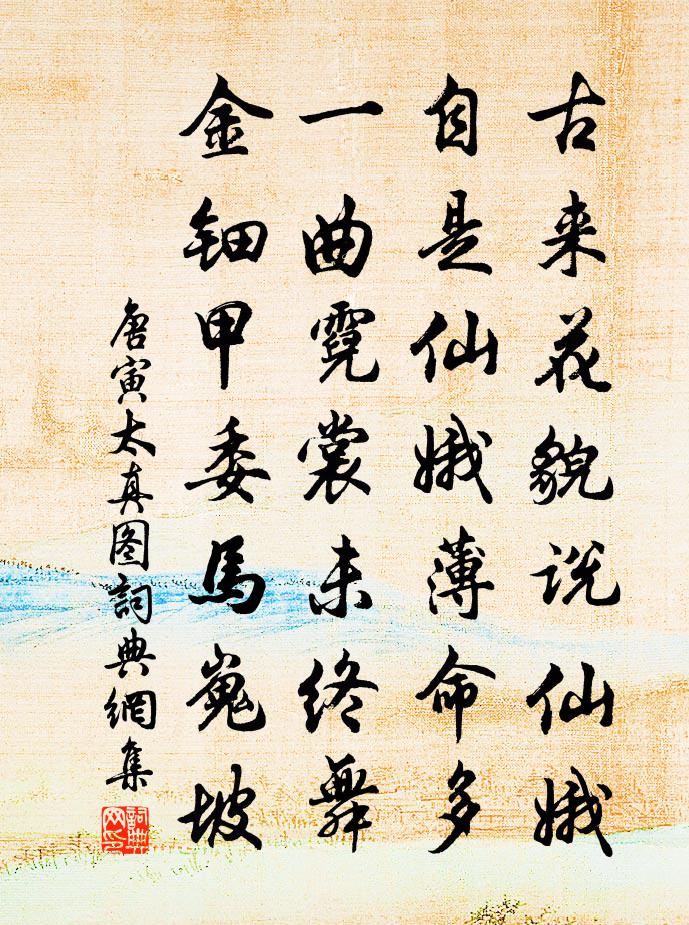 古来花貌说仙娥
自是仙娥薄命多
一曲霓裳未终舞
金钿甲委馬嵬坡
唐寅太真图詞典網集
詞典网印